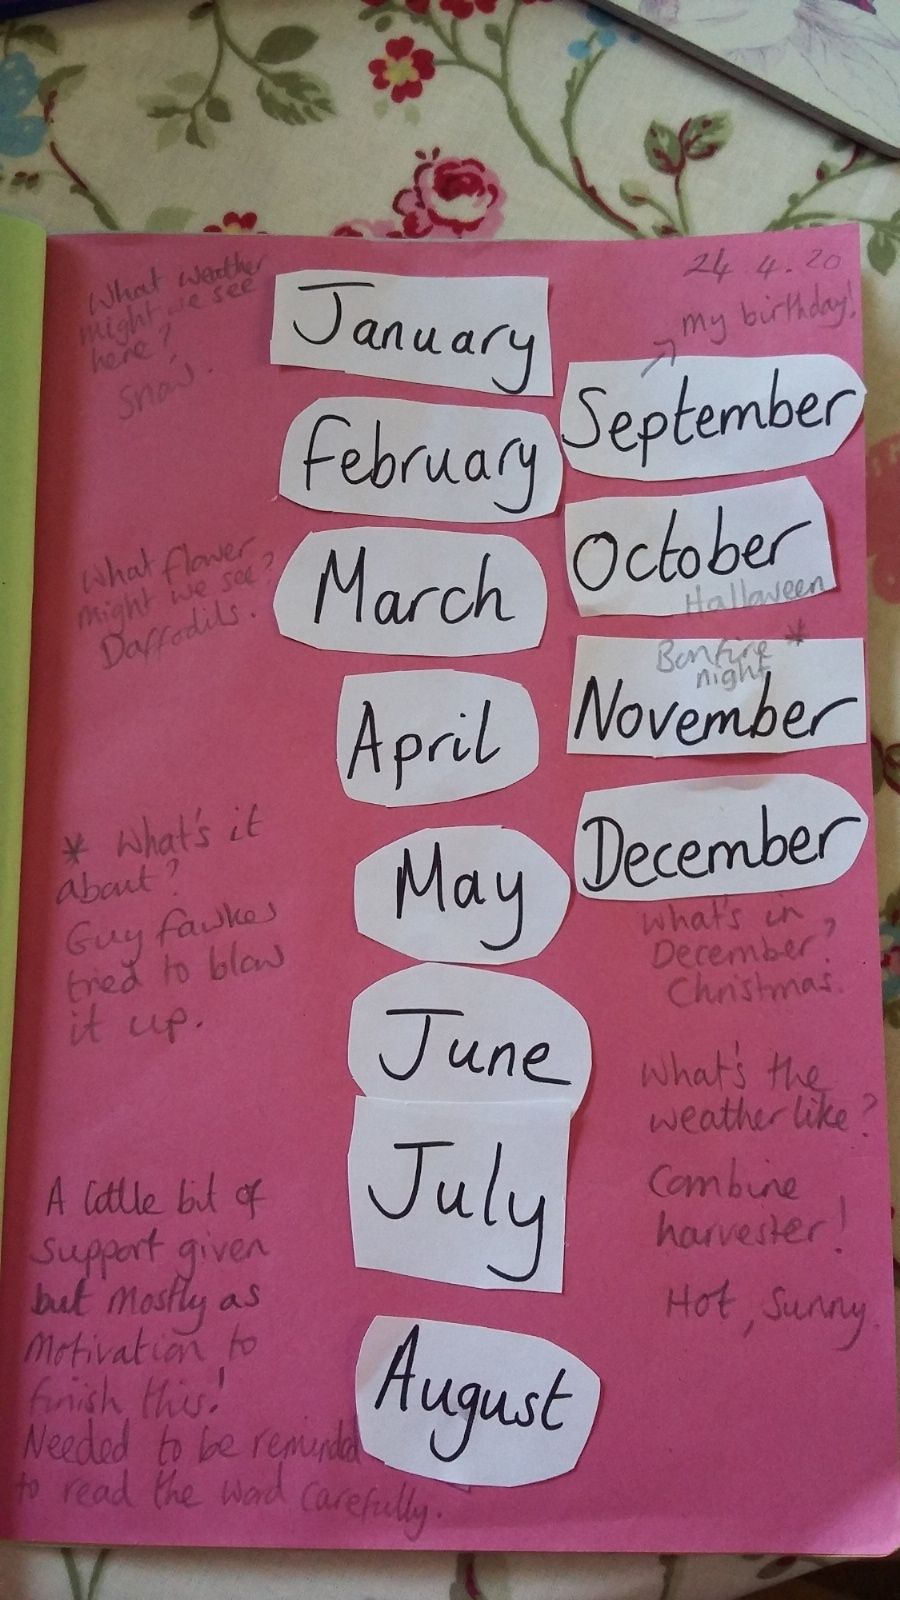 24.4.20
What weather
might we see
here?
Snow.
January
my birthday!
September
February
October
Halloween
What flower
might we see?
Daffodils.
March
Bonfire *
night
November
April
December
* What's it
about?
Guy Fawkes
tried to blow
it up.
May
What's in
December?
Christmas.
June
What's the
weather like?
Combine
harvester!
Hot, Sunny.
July
August
A little bit of
support given
but mostly as
motivation to
finish this!
Needed to be reminded
to read the word carefully.